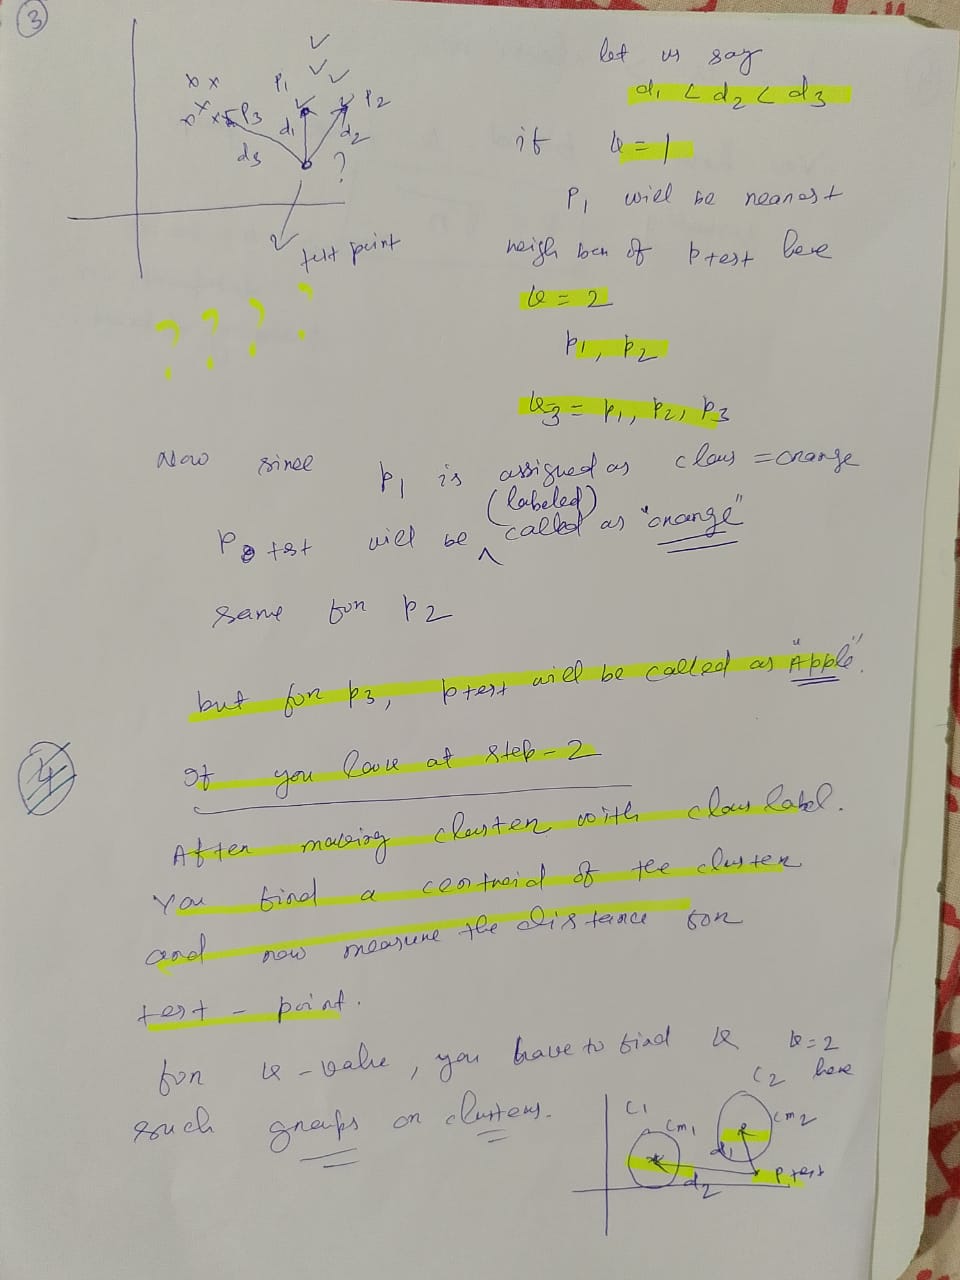 3
P1
P2
P3
d1
d2
d3
?
test point
? ? ? ?
let us say
d1 < d2 < d3
if k = 1
P1 will be nearest
neighbor of Ptest here
k = 2
P1, P2
k3 = P1, P2, P3
Now since P1 is assigned as class = orange
(labeled)
P test will be called as "orange"
same for P2
but for P3, Ptest will be called as "Apple".
4
If you look at step - 2
After making cluster with class label.
You find a centroid of the cluster
and now measure the distance for
test - point.
for k - value, you have to find k
such groups or clusters.
k = 2
here
C1
Cm1
C2
Cm2
d1
d2
P test